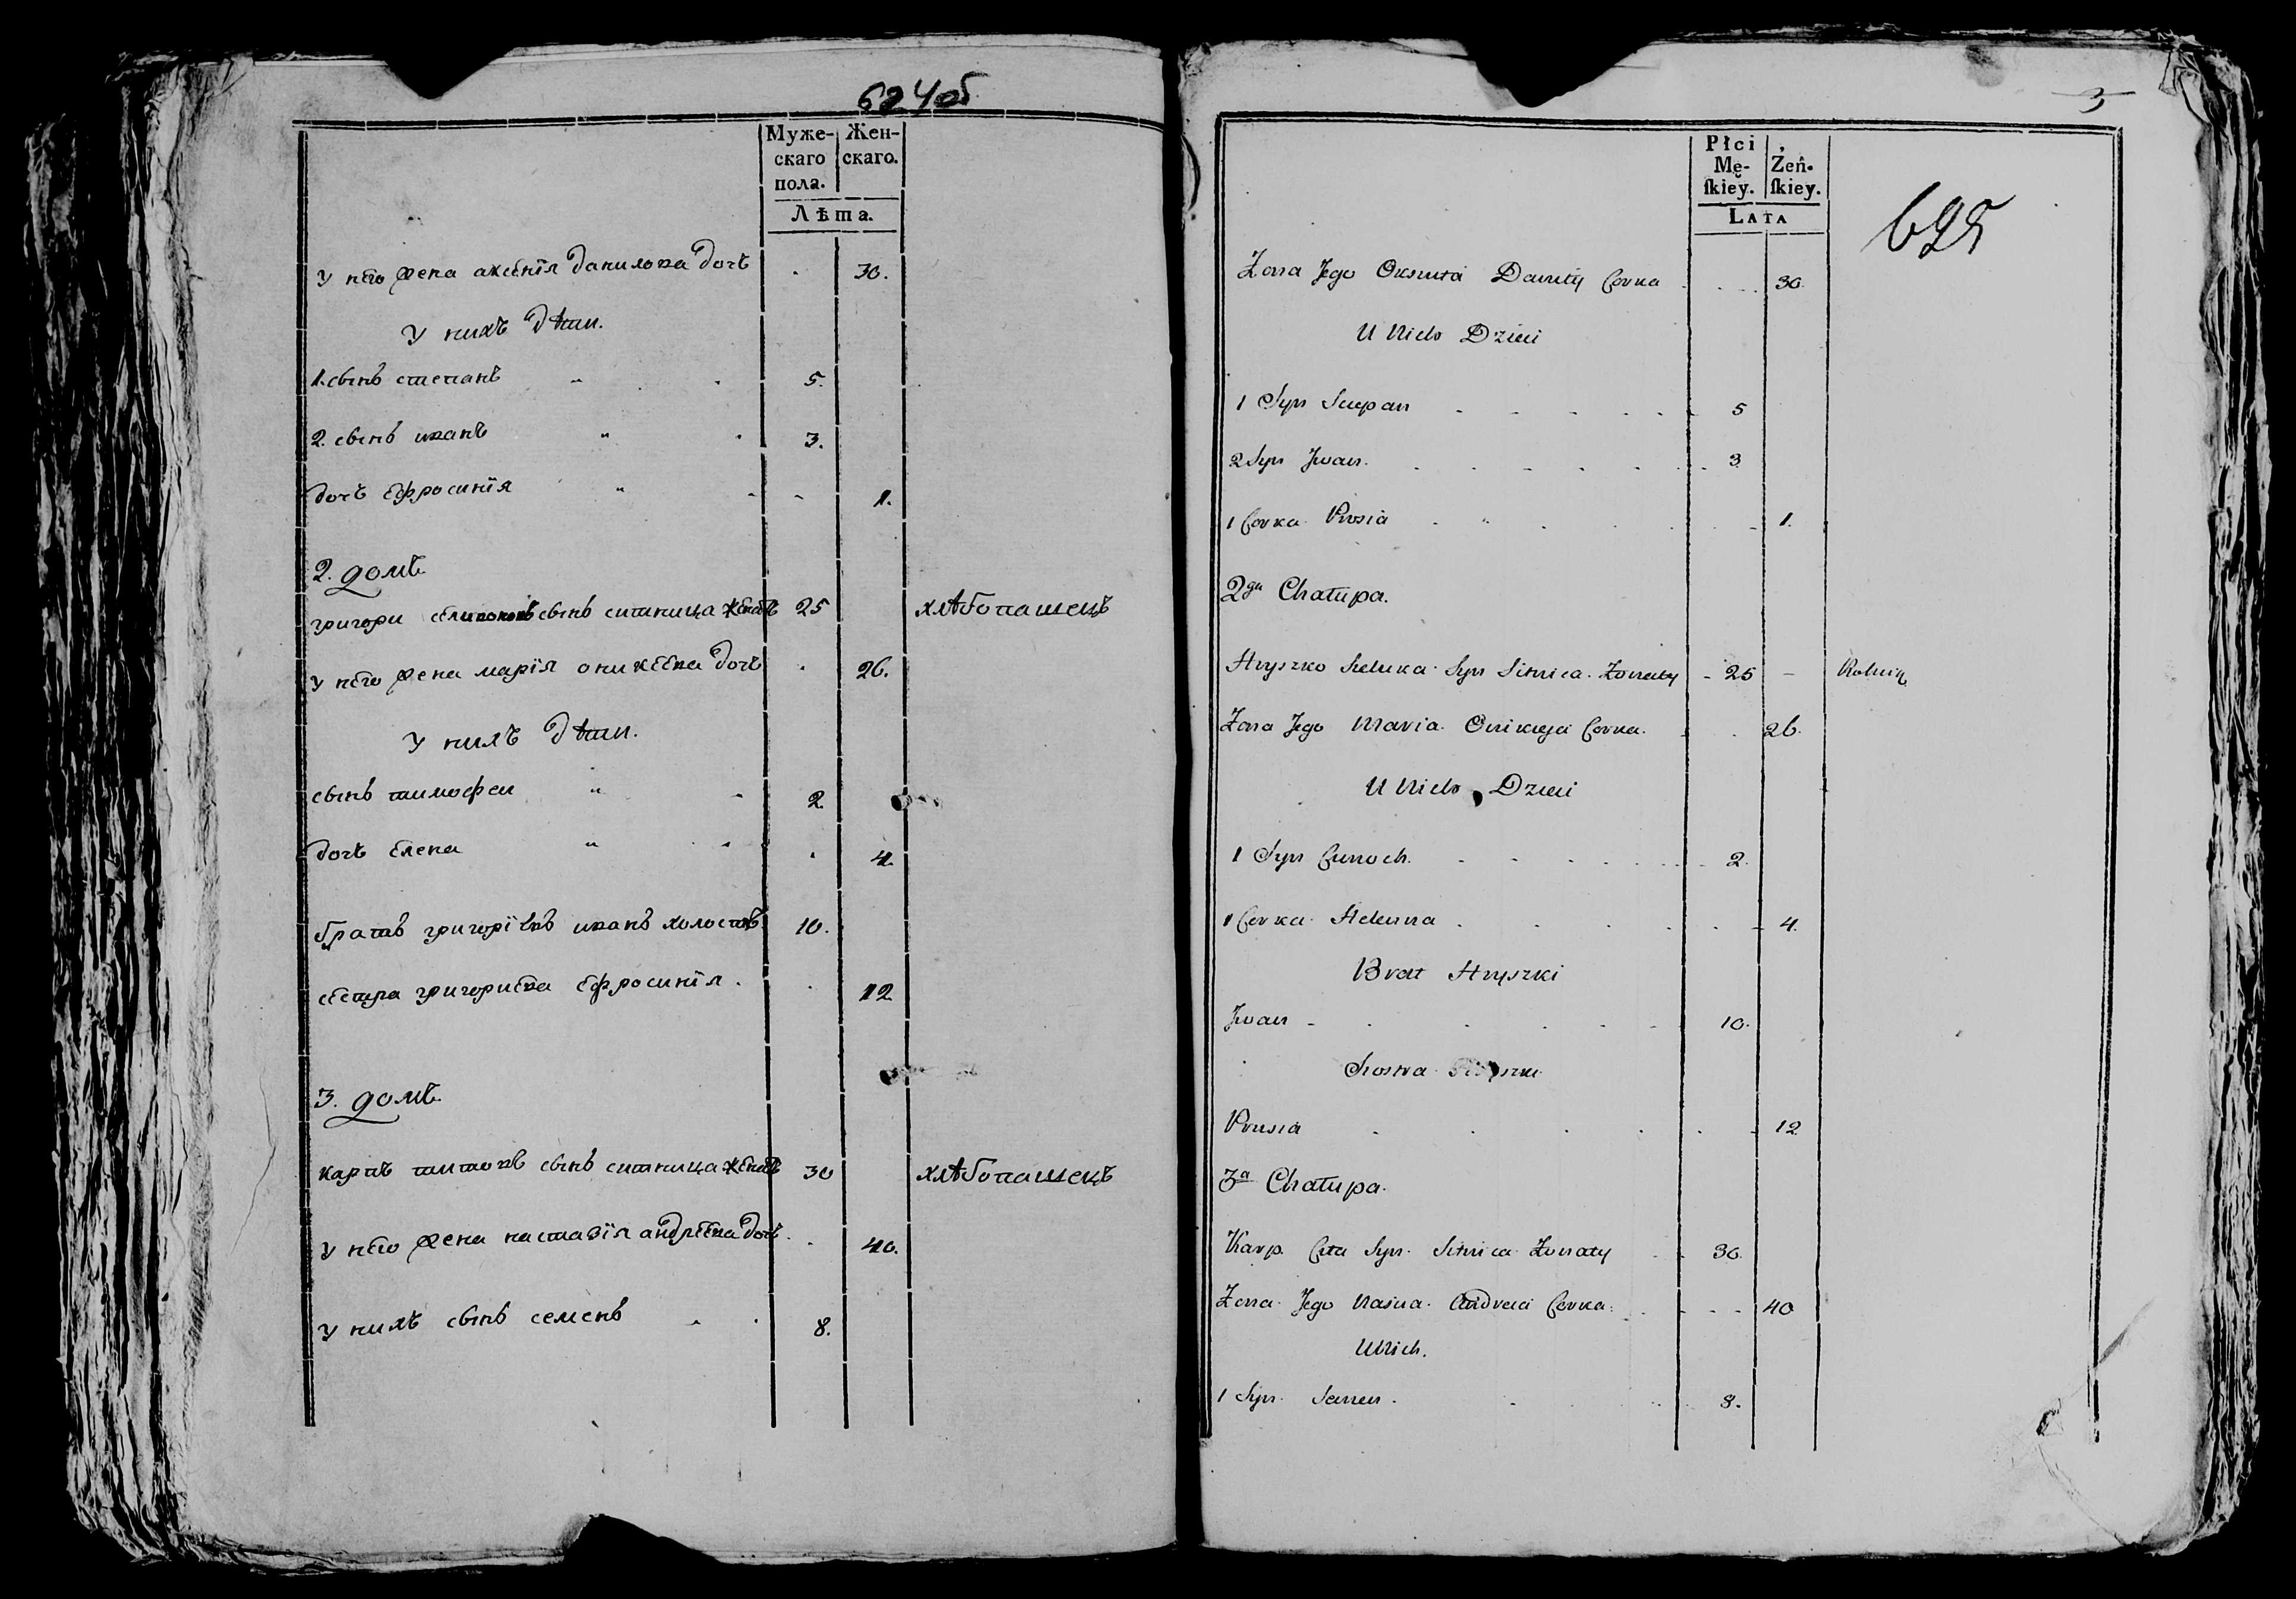 624об
Муже-
скаго
пола.
Жен-
скаго.
Лѣта.
у него жена аксенїя данилова дочь 30.
У нихъ дѣти.
1. сынъ степанъ 5.
2. сынъ иванъ 3.
дочь ефросинїя 1.
2. домъ
григори сынъ ситница женатъ 25 хлѣбопашецъ
у него жена марїя оникеева дочь 26.
У нихъ дѣти.
сынъ тимофеи 2
дочь елена 4.
братъ григорїевъ иванъ холостъ 10.
сестра григориева ефросинїя 12
3. домъ
карпъ титовъ сынъ ситница женатъ 30 хлѣбопашецъ
у него жена настазїя андреева дочь 40.
у нихъ сынъ семенъ 8.
3
625
Płci
Mę-
ſkiey.
Żeń-
ſkiey.
LATA
Żona Jego Oksinia Daniły Corka 30.
U Nich Dzieci
1 Syn Sciepan 5
2 Syn Jwan. 3
1 Corka Prosia 1.
2ga Chałupa.
Hryszko Syn Sitnica Żonaty 25 Rolnik
Żona Jego Maria Onikieja Corka. 26.
U Nich Dzieci
1 Syn Cimoch. 2.
1 Corka Helena 4.
Brat Hryszki
Jwan 10.
Siostra Hryszki
Prusia 12
3a Chałupa.
Karp Cita Syn Sitnica Żonaty 30.
Żona Jego Nasta Andreia Corka 40
U Nich.
1 Syn Semen. 8.